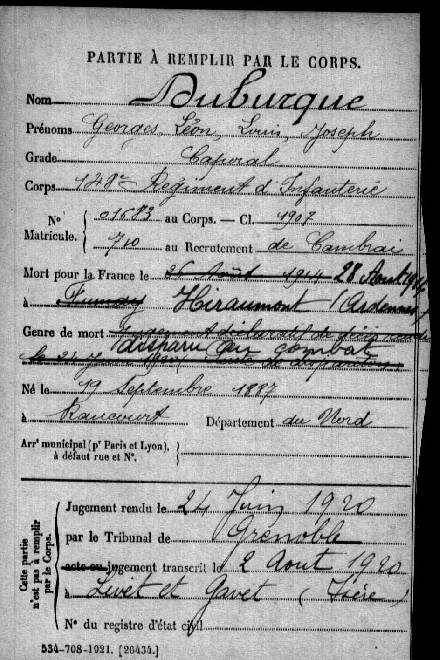 PARTIE À REMPLIR PAR LE CORPS.
Nom Duburque
Prénoms Georges, Léon, Louis, Joseph
Grade Caporal
Corps 148e Régiment d'Infanterie
N° Matricule. 01683 au Corps. — Cl. 1907
710 au Recrutement de Cambrai
Mort pour la France le 26 Août 1914 28 Aout 1914
à Fumay Hiraumont (Ardennes)
Genre de mort Jugement déclaratif de décès rendu
disparu au combat
le 24 Juin 1920
Né le 19 Septembre 1887
à Rancourt Département du Nord
Arrt municipal (pr Paris et Lyon), à défaut rue et N°.
Cette partie n'est pas à remplir par le Corps.
Jugement rendu le 24 Juin 1920
par le Tribunal de Grenoble
acte ou jugement transcrit le 2 Aout 1920
à Livet et Gavet (Isère)
N° du registre d'état civil
534-708-1921. [26434.]